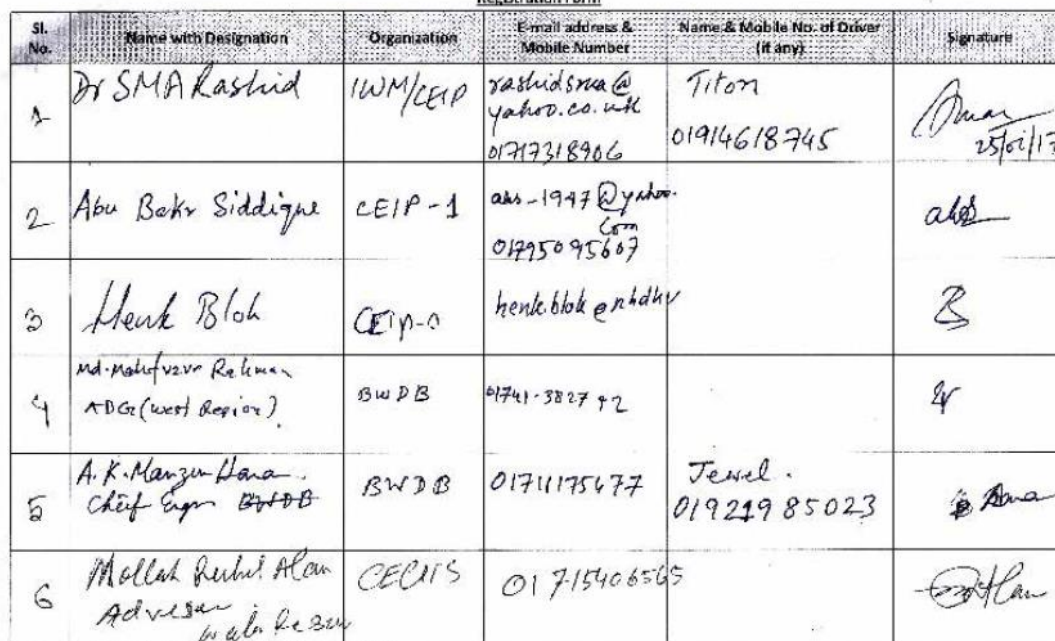 Registration Form
Sl. No. Name with Designation Organization E-mail address & Mobile Number Name & Mobile No. of Driver (if any) Signature
1 Dr SMA Rashid IWM/CEIP rashidsma@ yahoo.co.uk 01717318906 Titon 01914618745
2 Abu Bakr Siddique CEIP-1 abs-1947@yahoo. com 01795095607
3 Henk Blok henk.blok@rhdhv
4 Rahman ADG (West Region) BWDB 01741-382742
5 A.K. Manzur Chief Engr BWDB BWDB Jewel. 01921985023
6 Mollah Ruhul Alam 01715406565 Alam